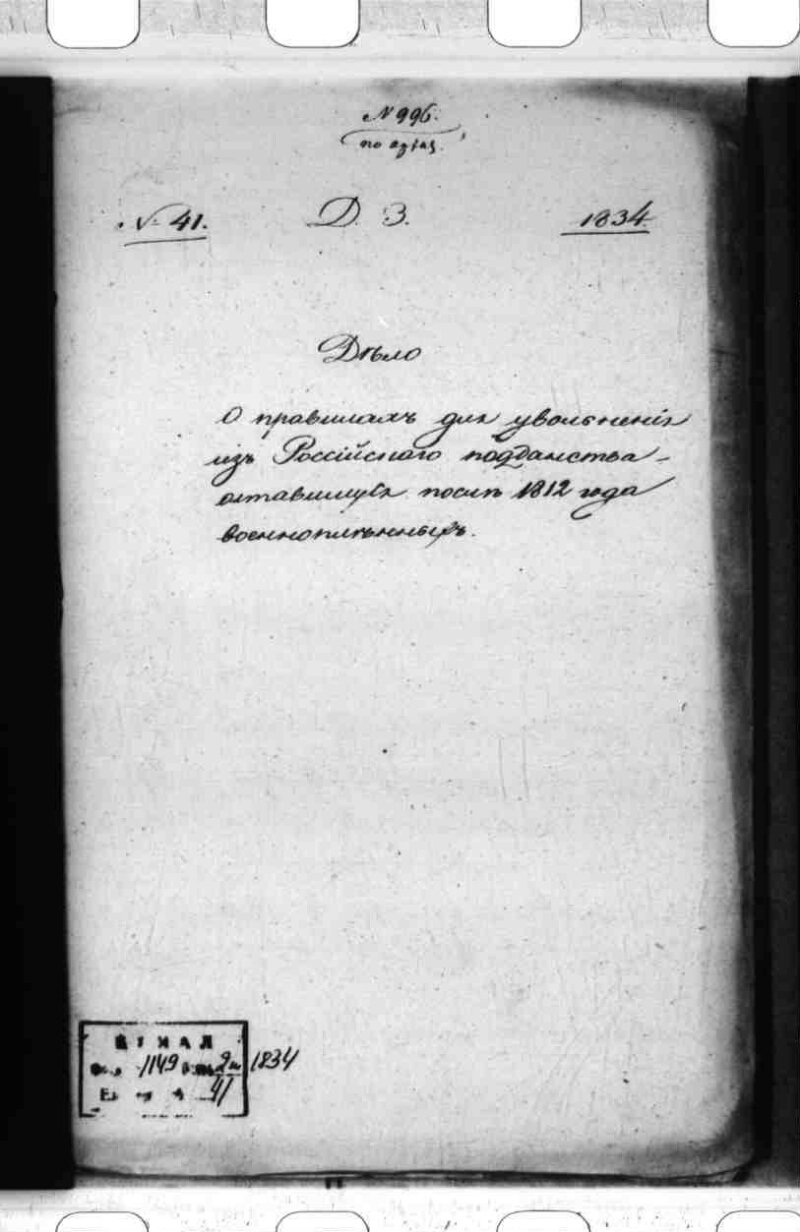 № 996.
по архив.
№ 41.
Д. З.
1834.
Дѣло
О правилахъ для увольненія
изъ Россійскаго подданства
оставшихся послѣ 1812 года
военноплѣнныхъ.
ЦГИАЛ
Фонд 1149 Опись 2 1834
Ед. хр. № 41